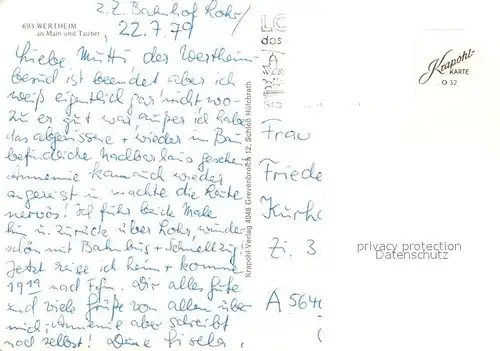 z. Z. Bahnhof Lohr/
22.7.79
693 WERTHEIM
an Main und Tauber
Liebe Mutti der Wertheim-
besuch ist beendet aber ich
weiß eigentlich gar nicht wo-
zu er gut war außer ich habe
das abgerissene + wieder im Bau
befindliche Nachbarhaus gesehen
kam auch wieder
angereist u. machte die Leute
nervös! ich fuhr beide Male
hin u. zurück über Lohr, wunder-
schön mit Bahnbus + Schnellzug.
Jetzt reise ich heim + komme
19 19 nach Ffm. Dir alles Gute
und viele Grüße von allen über
mich, aber schreibt
noch selbst! Deine Gisela.
Krapohl-Verlag 4048 Grevenbroich 12, Schloß Hülchrath
das
Krapohl-
KARTE
O 32
Frau
Friede
Kurho
Zi. 3
A 5640
privacy protection
Datenschutz